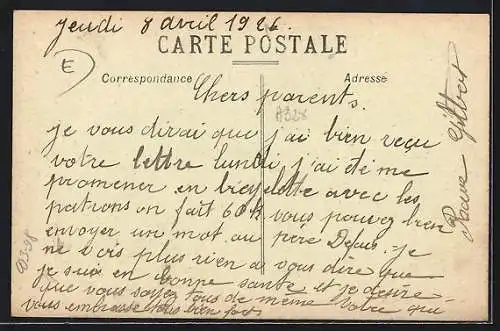 Jeudi 8 avril 1926.
CARTE POSTALE
E
Correspondance
Adresse
Chers parents.
A328
je vous dirai que j'ai bien reçu
votre lettre lundi j'ai été me
promener en bicyclette avec les
patrons on fait 60 k vous pouvez bien
envoyer un mot au père Defais. je
ne vois plus rien a vous dire que
je suis en bonne santé et je désire
que vous soyez tous de même votre qui
vous embrasse tous bien fort
Gilbert